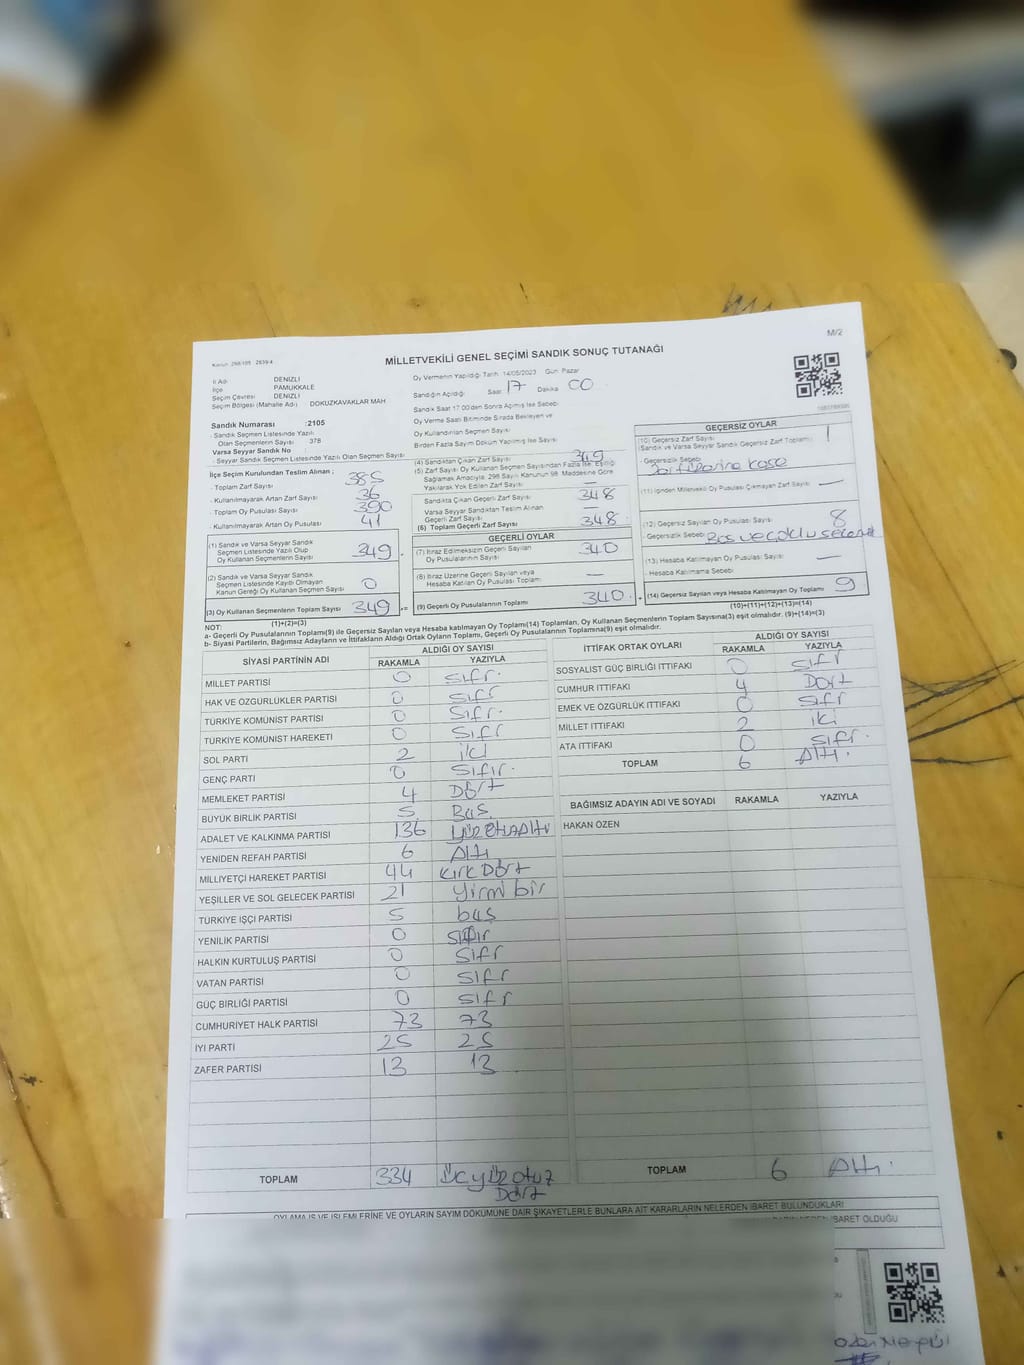 M/2
Kanun: 298/105 2839/4
MİLLETVEKİLİ GENEL SEÇİMİ SANDIK SONUÇ TUTANAĞI
İl Adı DENİZLİ
İlçe PAMUKKALE
Seçim Çevresi DENİZLİ
Seçim Bölgesi (Mahalle Adı) DOKUZKAVAKLAR MAH
Sandık Numarası :2105
- Sandık Seçmen Listesinde Yazılı
Olan Seçmenlerin Sayısı : 378
Varsa Seyyar Sandık No
- Seyyar Sandık Seçmen Listesinde Yazılı Olan Seçmen Sayısı
İlçe Seçim Kurulundan Teslim Alınan ;
- Toplam Zarf Sayısı 385
- Kullanılmayarak Artan Zarf Sayısı 36
- Toplam Oy Pusulası Sayısı 390
- Kullanılmayarak Artan Oy Pusulası 41
(1) Sandık ve Varsa Seyyar Sandık
Seçmen Listesinde Yazılı Olup
Oy Kullanan Seçmenlerin Sayısı 349
(2) Sandık ve Varsa Seyyar Sandık
Seçmen Listesinde Kayıtlı Olmayan
Kanun Gereği Oy Kullanan Seçmen Sayısı 0
(3) Oy Kullanan Seçmenlerin Toplam Sayısı 349
(1)+(2)=(3)
Oy Vermenin Yapıldığı Tarih :14/05/2023 Gün: Pazar
Sandığın Açıldığı Saat 17 Dakika 00
Sandık Saat 17:00'den Sonra Açılmış İse Sebebi
Oy Verme Saati Bitiminde Sırada Bekleyen ve
Oy Kullandırılan Seçmen Sayısı
Birden Fazla Sayım Döküm Yapılmış İse Sayısı
(4) Sandıktan Çıkan Zarf Sayısı 349
(5) Zarf Sayısı Oy Kullanan Seçmen Sayısından Fazla İse, Eşitliği
Sağlamak Amacıyla, 298 Sayılı Kanunun 98. Maddesine Göre
Yakılarak Yok Edilen Zarf Sayısı —
Sandıkta Çıkan Geçerli Zarf Sayısı 348
Varsa Seyyar Sandıktan Teslim Alınan
Geçerli Zarf Sayısı —
(6) Toplam Geçerli Zarf Sayısı 348
GEÇERLİ OYLAR
(7) İtiraz Edilmeksizin Geçerli Sayılan
Oy Pusulalarının Sayısı 340
(8) İtiraz Üzerine Geçerli Sayılan veya
Hesaba Katılan Oy Pusulası Toplamı —
(9) Geçerli Oy Pusulalarının Toplamı 340
GEÇERSİZ OYLAR
(10) Geçersiz Zarf Sayısı 1
(Sandık ve Varsa Seyyar Sandık Geçersiz Zarf Toplamı)
- Geçersizlik Sebebi
(11) İçinden Milletvekili Oy Pusulası Çıkmayan Zarf Sayısı —
(12) Geçersiz Sayılan Oy Pusulası Sayısı 8
- Geçersizlik Sebebi
(13) Hesaba Katılmayan Oy Pusulası Sayısı —
- Hesaba Katılmama Sebebi
(14) Geçersiz Sayılan veya Hesaba Katılmayan Oy Toplamı 9
(10)+(11)+(12)+(13)=(14)
NOT:
a- Geçerli Oy Pusulaları Toplamı(9) ile Geçersiz Sayılan veya Hesaba katılmayan Oy Toplamı(14) Toplamları, Oy Kullanan Seçmenlerin Toplam Sayısına(3) eşit olmalıdır. (9)+(14)=(3)
b- Siyasi Partilerin, Bağımsız Adayların ve İttifakların Aldığı Ortak Oyların Toplamı, Geçerli Oy Pusulalarının Toplamına(9) eşit olmalıdır.
SİYASİ PARTİNİN ADI ALDIĞI OY SAYISI
RAKAMLA YAZIYLA
MİLLET PARTİSİ 0 sıfr.
HAK VE ÖZGÜRLÜKLER PARTİSİ 0 sıfr
TÜRKİYE KOMÜNİST PARTİSİ 0 sıfr.
TÜRKİYE KOMÜNİST HAREKETİ 0 sıfr
SOL PARTİ 2 iki
GENÇ PARTİ 0 sıfır.
MEMLEKET PARTİSİ 4 Dört
BÜYÜK BİRLİK PARTİSİ 5 Baş.
ADALET VE KALKINMA PARTİSİ 136
YENİDEN REFAH PARTİSİ 6 Altı
MİLLİYETÇİ HAREKET PARTİSİ 44 Kırk Dört
YEŞİLLER VE SOL GELECEK PARTİSİ 21 Yirmi bir
TÜRKİYE İŞÇİ PARTİSİ 5 baş
YENİLİK PARTİSİ 0 sıfır
HALKIN KURTULUŞ PARTİSİ 0 sıfr
VATAN PARTİSİ 0 sıfr
GÜÇ BİRLİĞİ PARTİSİ 0 sıfr
CUMHURİYET HALK PARTİSİ 73 73
İYİ PARTİ 25 25
ZAFER PARTİSİ 13 13
TOPLAM 334 üçyüz otuz
Dört
İTTİFAK ORTAK OYLARI ALDIĞI OY SAYISI
RAKAMLA YAZIYLA
SOSYALİST GÜÇ BİRLİĞİ İTTİFAKI 0 sıfr
CUMHUR İTTİFAKI 4 Dört
EMEK VE ÖZGÜRLÜK İTTİFAKI 0 sıfr
MİLLET İTTİFAKI 2 iki
ATA İTTİFAKI 0 sıfr.
TOPLAM 6 Altı.
BAĞIMSIZ ADAYIN ADI VE SOYADI RAKAMLA YAZIYLA
HAKAN ÖZEN
TOPLAM 6 Altı.
OYLAMA İŞ VE İŞLEMLERİNE VE OYLARIN SAYIM DÖKÜMÜNE DAİR ŞİKAYETLERLE BUNLARA AİT KARARLARIN NELERDEN İBARET BULUNDUKLARI
İBARET OLDUĞU